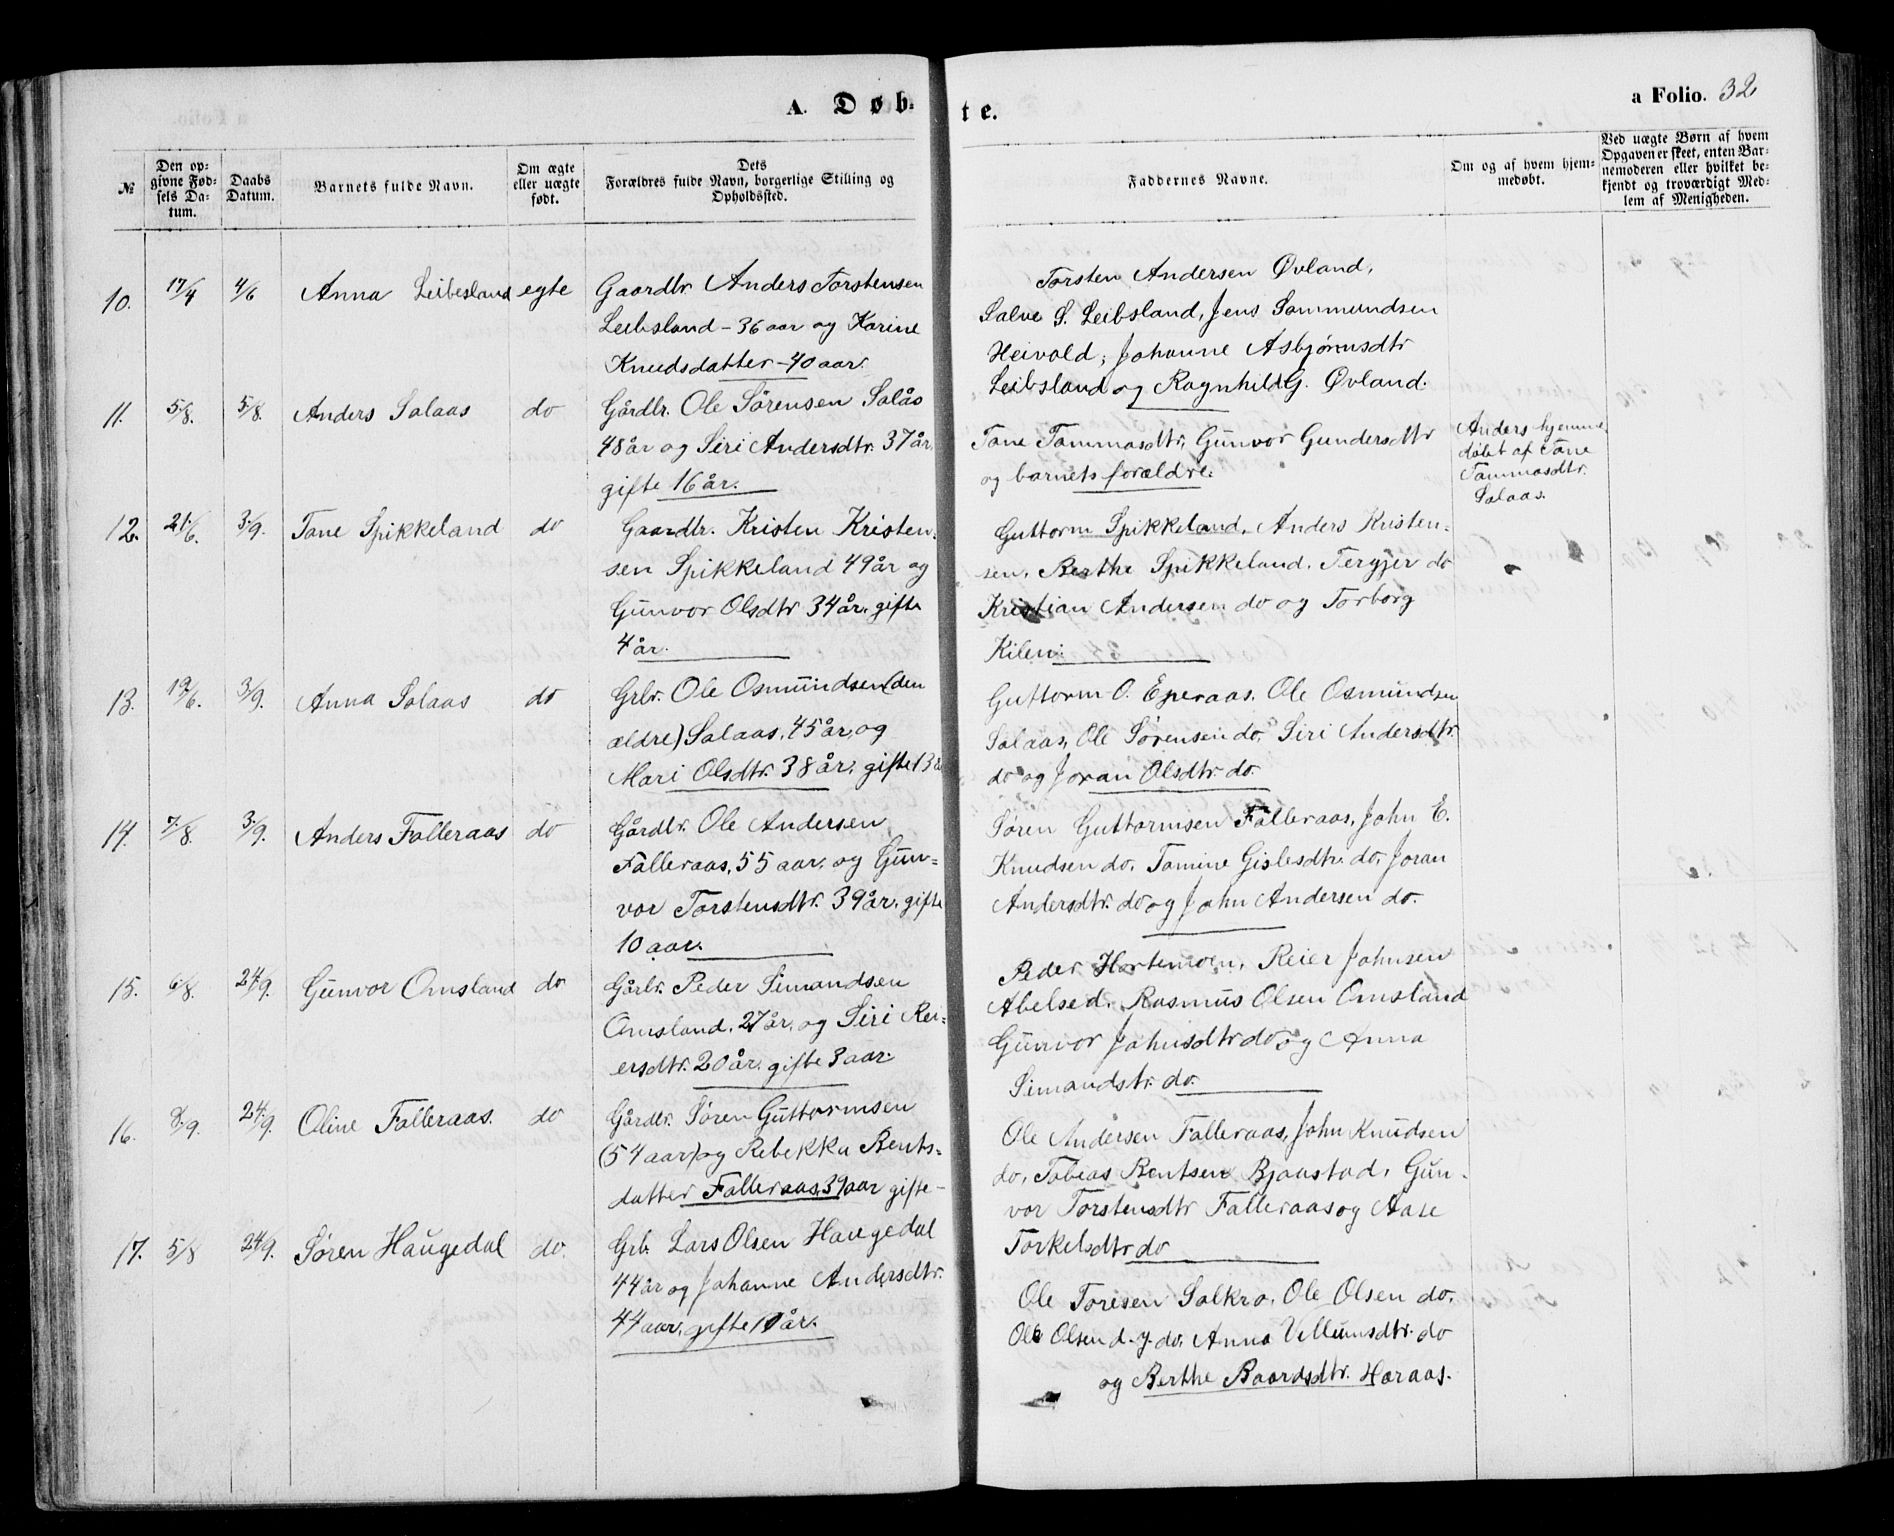 A. Døb-
te.
a Folio. 32
№
Den op-
givne Fød-
sels Da-
tum.
Daabs
Datum.
Barnets fulde Navn.
Om ægte
eller uægte
født.
Dets
Forældres fulde Navn, borgerlige Stilling og
Opholdssted.
Faddernes Navne.
Om og af hvem hjem-
medøbt.
Ved uægte Børn af hvem
Opgaven er skeet, enten Bar-
nemoderen eller hvilket be-
kjendt og troværdigt Med-
lem af Menigheden.
10. 17/4 4/6 Anna Leibesland egte
Gaardbr Anders Torstensen
Leibsland - 36 aar og Karine
Knudsdatter - 40 aar.
Torsten Andersen Øvland,
Salve S. Leibsland, Jens Sammundsen
Heivold, Johanne Asbjørnsdtr
Leibsland og Ragnhild G. Øvland.
11. 5/8. 5/8. Anders Salaas do
Gårdbr. Ole Sørensen Salås
48 år og Siri Andersdtr. 37 år,
gifte 16 år.
Tone Tammasdtr, Gunvor Gundersdtr
og barnets forældre.
Anders hjemme
døbt af Tone
Tammasdtr.
Salaas.
12. 21/6. 3/9. Tone Spikkeland do
Gaardbr. Kristen Kristen-
sen Spikkeland 49 år og
Gunvor Olsdtr 34 år, gifte
4 år.
Guttorm Spikkeland, Anders Kristen-
sen, Berthe Spikkeland, Tergjer do
Kristian Andersen do og Torborg
Kilen.
13. 19/6. 3/9. Anna Salaas do
Grbr. Ole Osmundsen (den
ældre) Salaas, 45 år, og
Mari Olsdtr. 38 år, gifte 13 å
Guttorm O. Eperaas, Ole Osmundsen
Salaas, Ole Sørensen do, Siri Andersdtr.
do og Joran Olsdtr. do.
14. 7/8. 3/9. Anders Falleraas do
Gårdbr. Ole Andersen
Falleraas, 55 aar, og Gun-
vor Torstensdtr. 39 år, gifte
10 aar.
Søren Guttormsen Falleraas, John E.
Knudsen do, Tomine Gislesdtr. do, Joran
Andersdtr. do og John Andersen do.
15. 6/8. 24/9. Gunvor Omsland do
Gårbr. Peder Simondsen
Omsland, 27 år, og Siri Rei-
ersdtr. 20 år, gifte 3 aar.
Peder Hortemoen, Reier Johnsen
Abelsed, Rasmus Olsen Omsland
Gunvor Johnsdtr do og Anna
Simondstr. do.
16. 24/9. Oline Falleraas. do
Gårdbr. Søren Guttormsen
(54 aar) og Rebekka Bents-
datter Falleraas, 39 aar gifte -
Ole Andersen Falleraas, John Knudsen
do, Tobias Bentsen Bjaastad, Gun-
vor Torstensdtr Falleraas og Aase
Torkelsdtr do
17. 5/8 24/9. Søren Haugedal do.
Grb. Lars Olsen Haugedal
44 år og Johanne Andersdtr.
44 aar, gifte år.
Ole Toresen Solkro, Ole Olsen do.
Ole Olsen d. y. do, Anna Vellumsdtr. do
og Berthe Baardsdtr. Haraas.